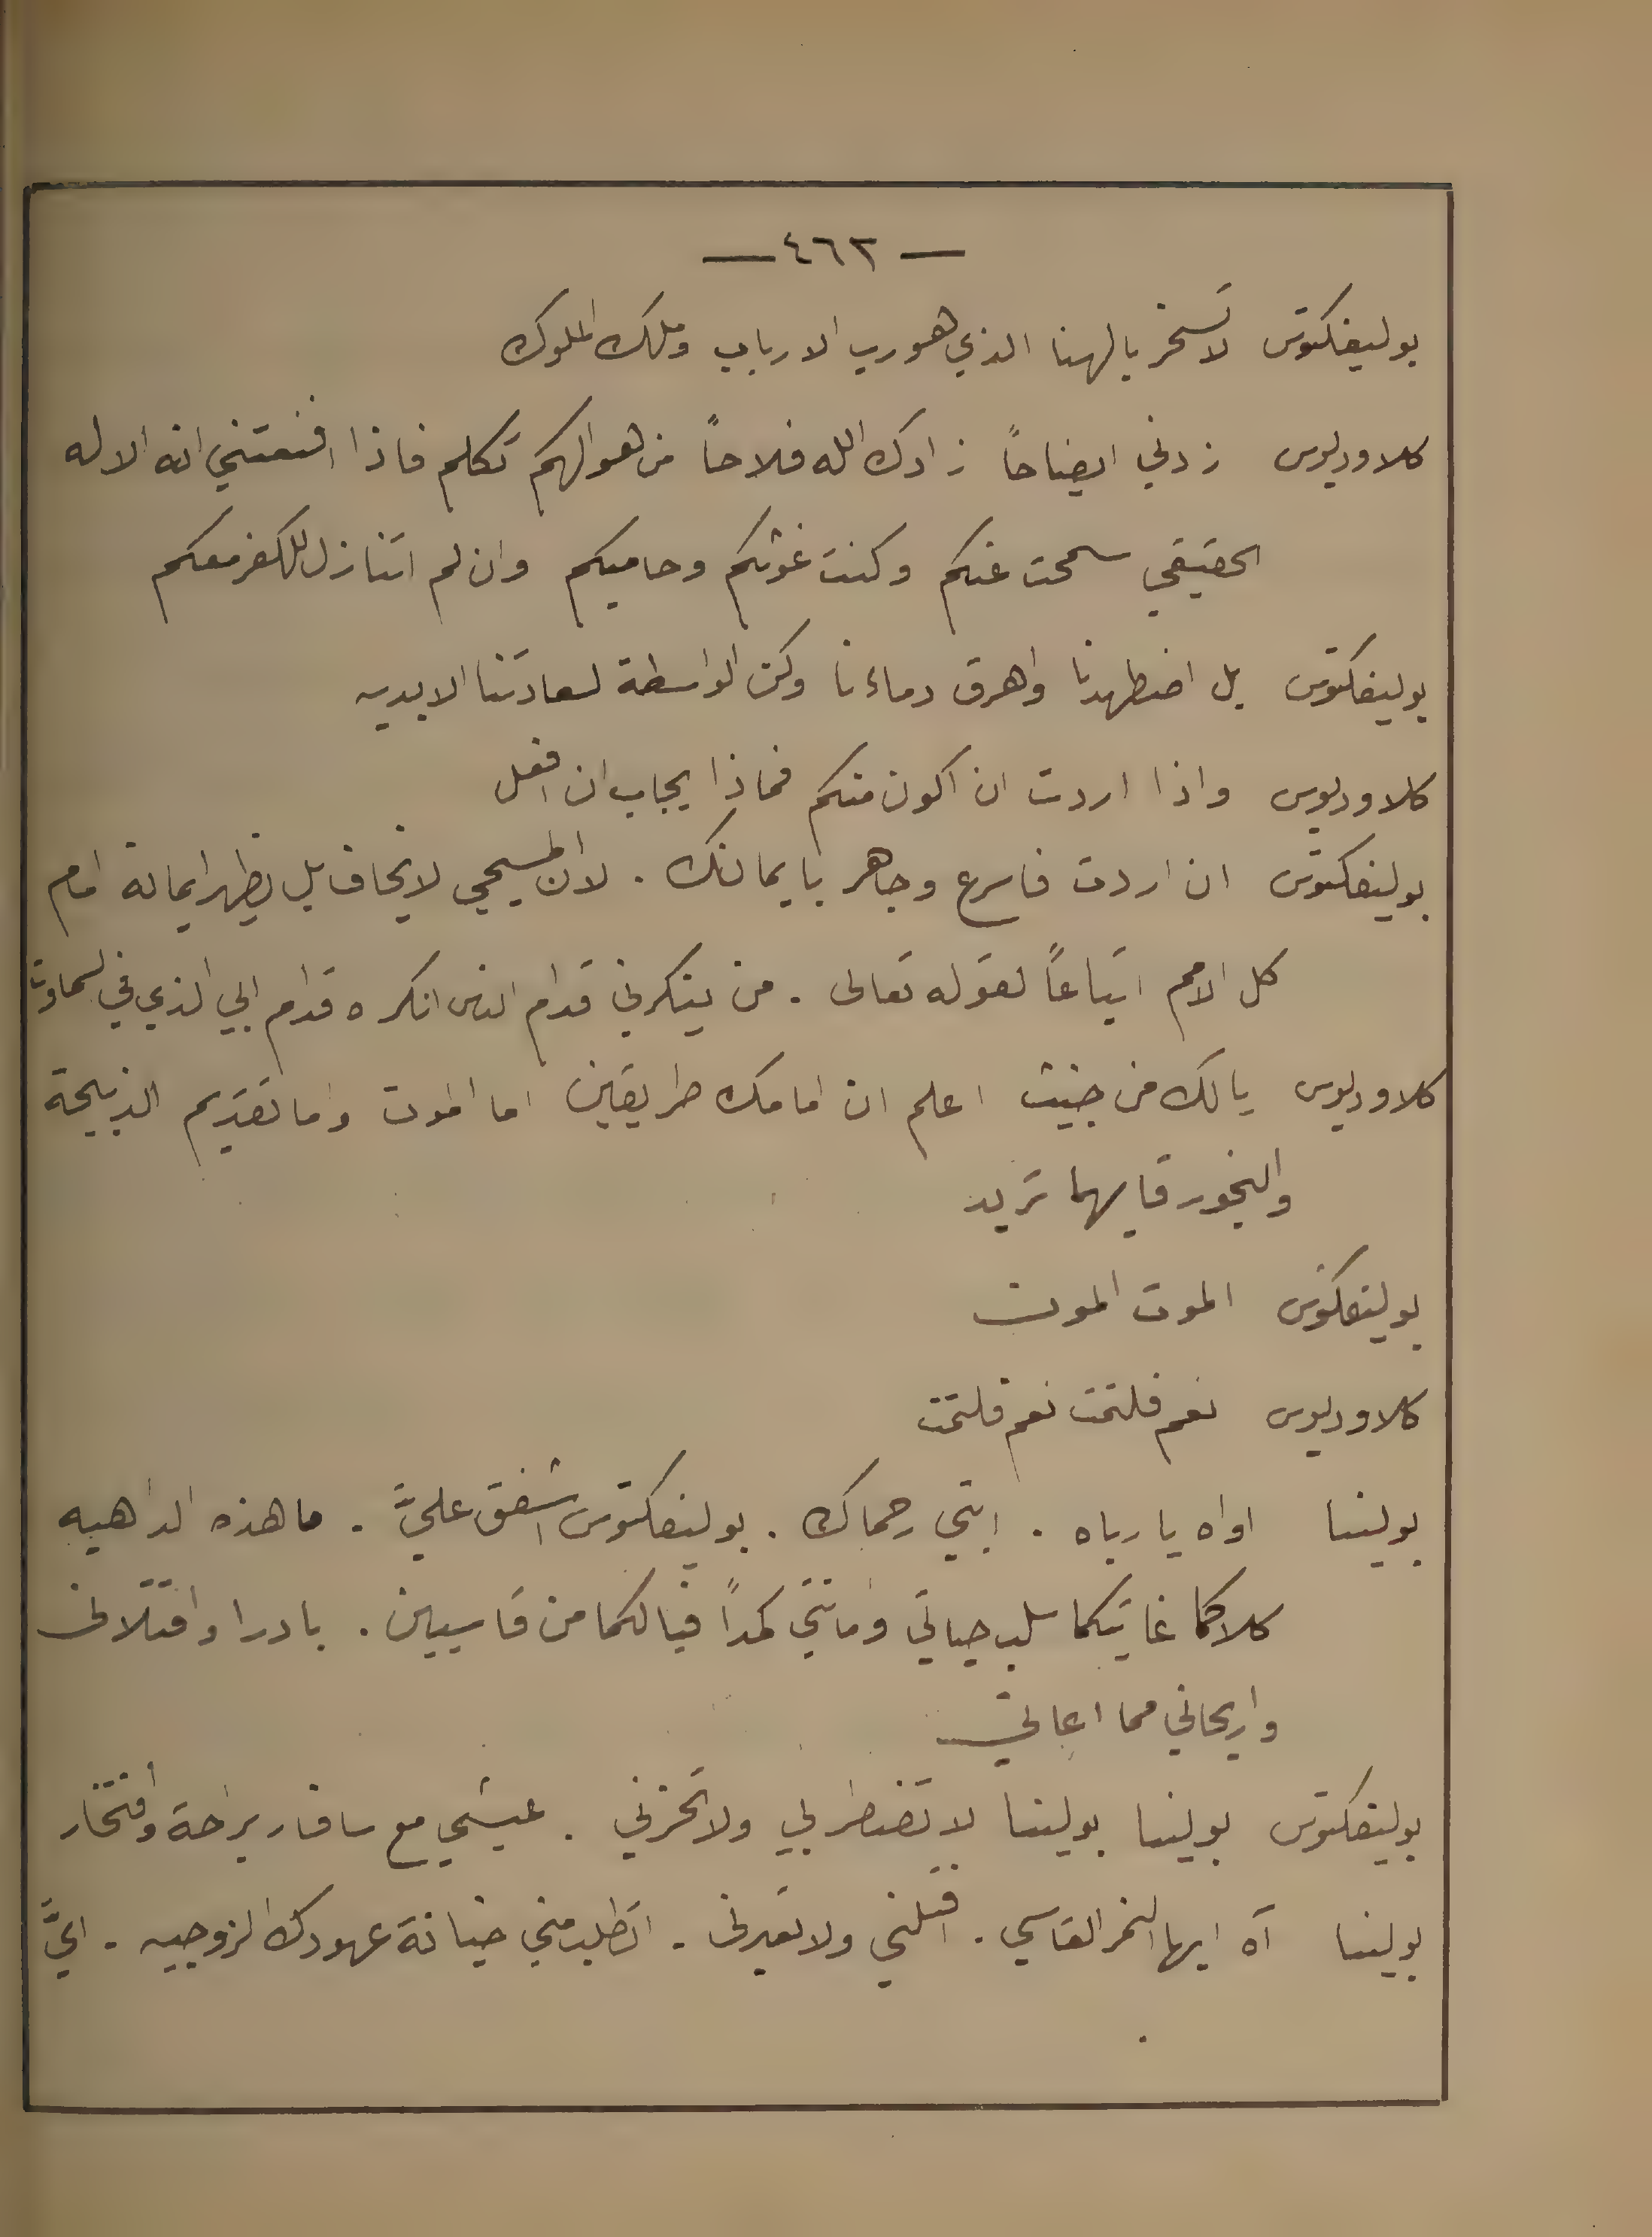 — ٤٦٣ —
بوليفكتوس لا تسخر بالهنا الذي هو رب الارباب وملك الملوك
كلاوديوس زدني ايضاحاً زادك الله فلاحاً من هو الهكم تكلم فاذا اقنعتني انه الاله
الحقيقي سمحت عنكم وكنت غوثكم وحاميكم وان لم اتنازل للكفر معكم
بوليفكتوس بل اضطهدنا واهرق دماءنا وكن الواسطة لسعادتنا الابديه
كلاوديوس واذا اردت ان اكون منكم فماذا يجاب ان افعل
بوليفكتوس ان اردت فاسرع وجاهر بايمانك . لان المسيحي لا يخاف بل يظهر ايمانه امام
كل الامم اتباعاً لقوله تعالى . من ينكرني قدام الناس انكره قدام ابي الذي في السماوات
كلاوديوس يا لك من خبيث اعلم ان امامك طريقين اما الموت واما تقديم الذبيحة
والبخور فايهما تريد
بوليفكتوس الموت الموت
كلاوديوس نعم فلتمت نعم فلتمت
بولينا اواه يا رباه . ابتي رحماك . بوليفكتوس اشفق عليَّ . ما هذه الداهيه
كلاكما غايتكما سلب حياتي واماتتي كمداً فيا لكما من قاسيين . بادرا واقتلاني
واريحاني مما اعاني
بوليفكتوس بولينا بولينا لا تضطربي ولا تحزني . عيشي مع سافار براحة وافتخار
بولينا آه ايها النمر القاسي . اقتلني ولا تعيرني . اتطلب مني خيانة عهودك الزوجيه . ايَّ